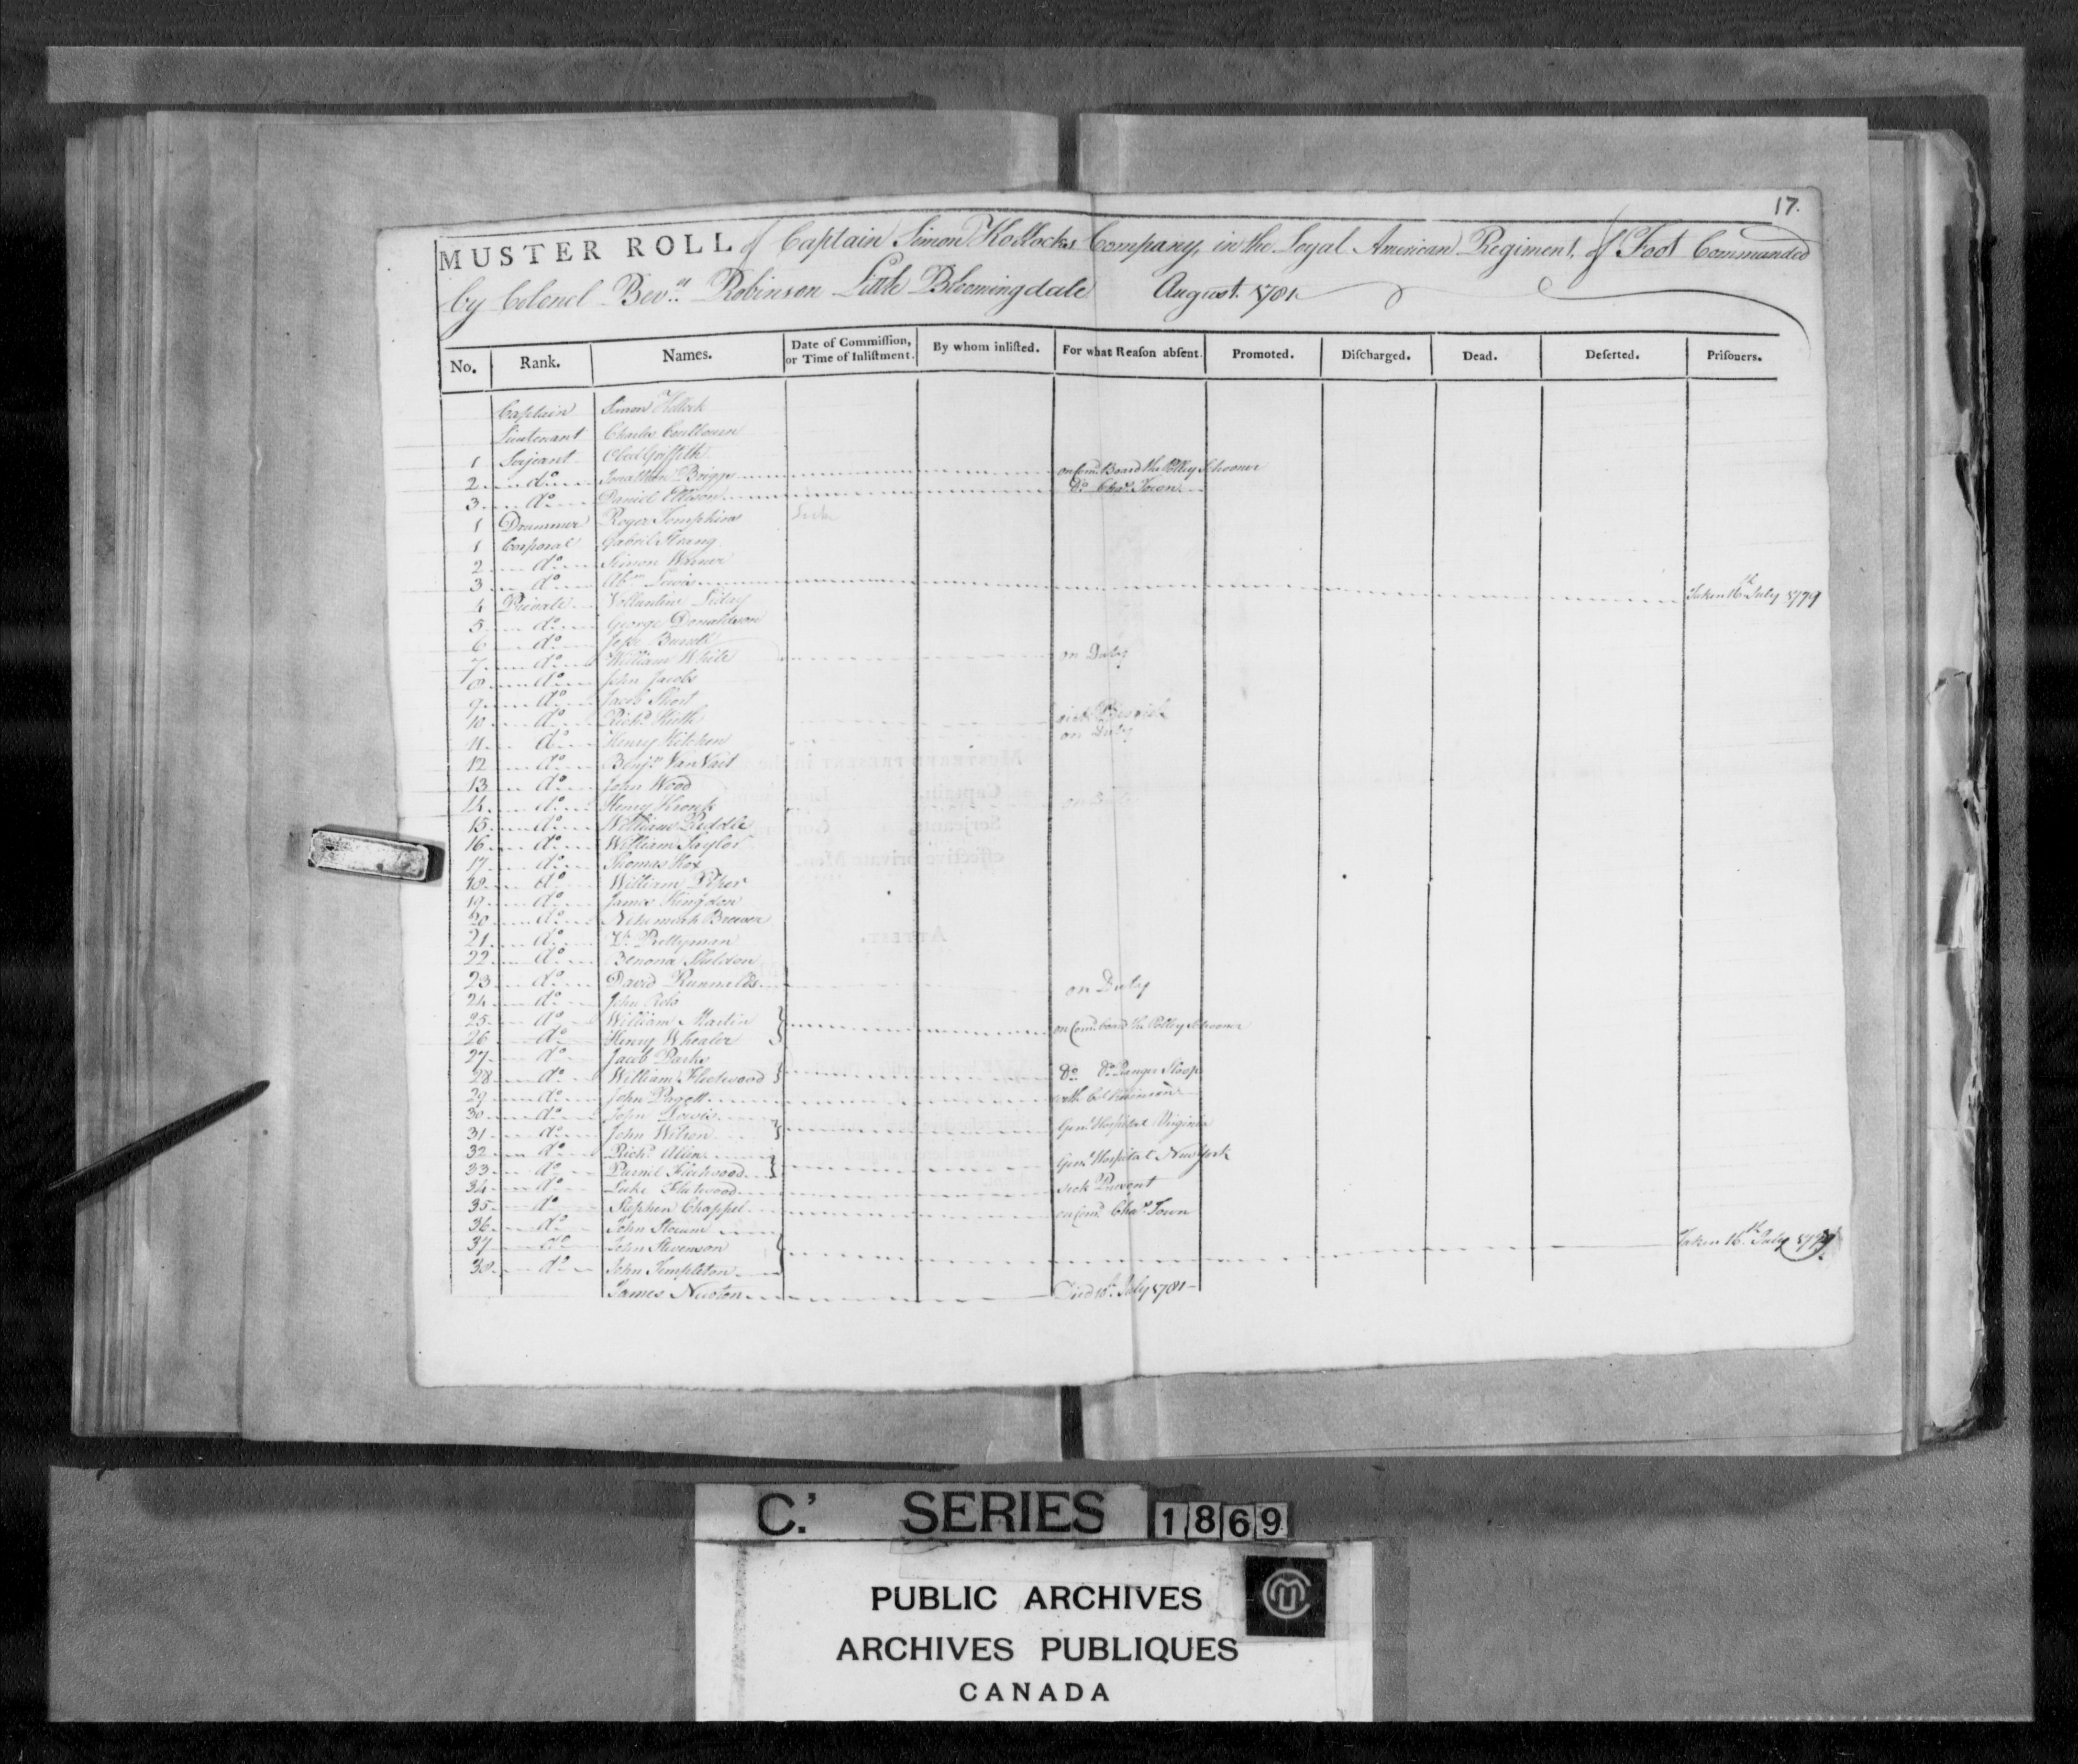 17.
MUSTER ROLL of Captain Simon Kollocks Company, in the Loyal American Regiment, of Foot Commanded
by Colonel Bev.n Robinson Little Bloomingdale August 1781
No. Rank. Names. Date of Commiſſion, or Time of Inliſtment. By whom inliſted. For what Reaſon abſent. Promoted. Diſcharged. Dead. Deſerted. Priſoners.
Captain Simon Kollock
Lieutenant Charles Coulbourn
1 Serjeant Obed Griffith
2 do Jonathan Briggs on Com.d Board the Potley Schooner
3 do Daniel Ellison Do Cha.s Town
1 Drummer Roger Tompkins Sick
1 Corporal Gabril Strang
2 do Simon Warner
3 do Ab.m Lewis Taken 16th July 1779
4 Private Vollantine
5 do George Donaldson
6 do
7 do William White on Duty
8 do John Jacobs
9 do Jacob Short
10 do Rich.d Smith sick
11 do Henry Kitchen on Duty
12 do Benj.n VanVact
13 do John Wood
14 do Henry on
15 do William Riddle
16 do William Taylor
17 do Thomas Hox
18 do William Piper
19 do James Kingdon
20 do Nehemiah Brewer
21 do Prettyman
22 do Benona Sheldon
23 do David Runnalds on Duty
24 do John
25 do William Martin on Com.d board the Potley Schooner
26 do Henry Whealer
27 do Jacob Parks
28 do William Fleetwood Do Do Ranger Sloop
29 do John Pagett with Col. Robinson
30 do John Lewis
31 do John Wilson Gen.l Hospital Virginia
32 do Rich.d Allin
33 do Purnel Fleetwood Gen.l Hospital New York
34 do Luke Fleetwood sick Present
35 do Stephen Chappel on Com.d Cha.s Town
36 do John
37 do John Stevenson Taken 16th July 1779
38 do John Templeton
James Newton Died July 1781
C.' SERIES 1869
PUBLIC ARCHIVES
ARCHIVES PUBLIQUES
CANADA